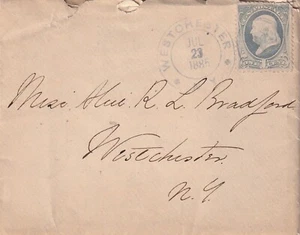 WESTCHESTER
23
188
R. L. Bradford
Westchester
N.Y.